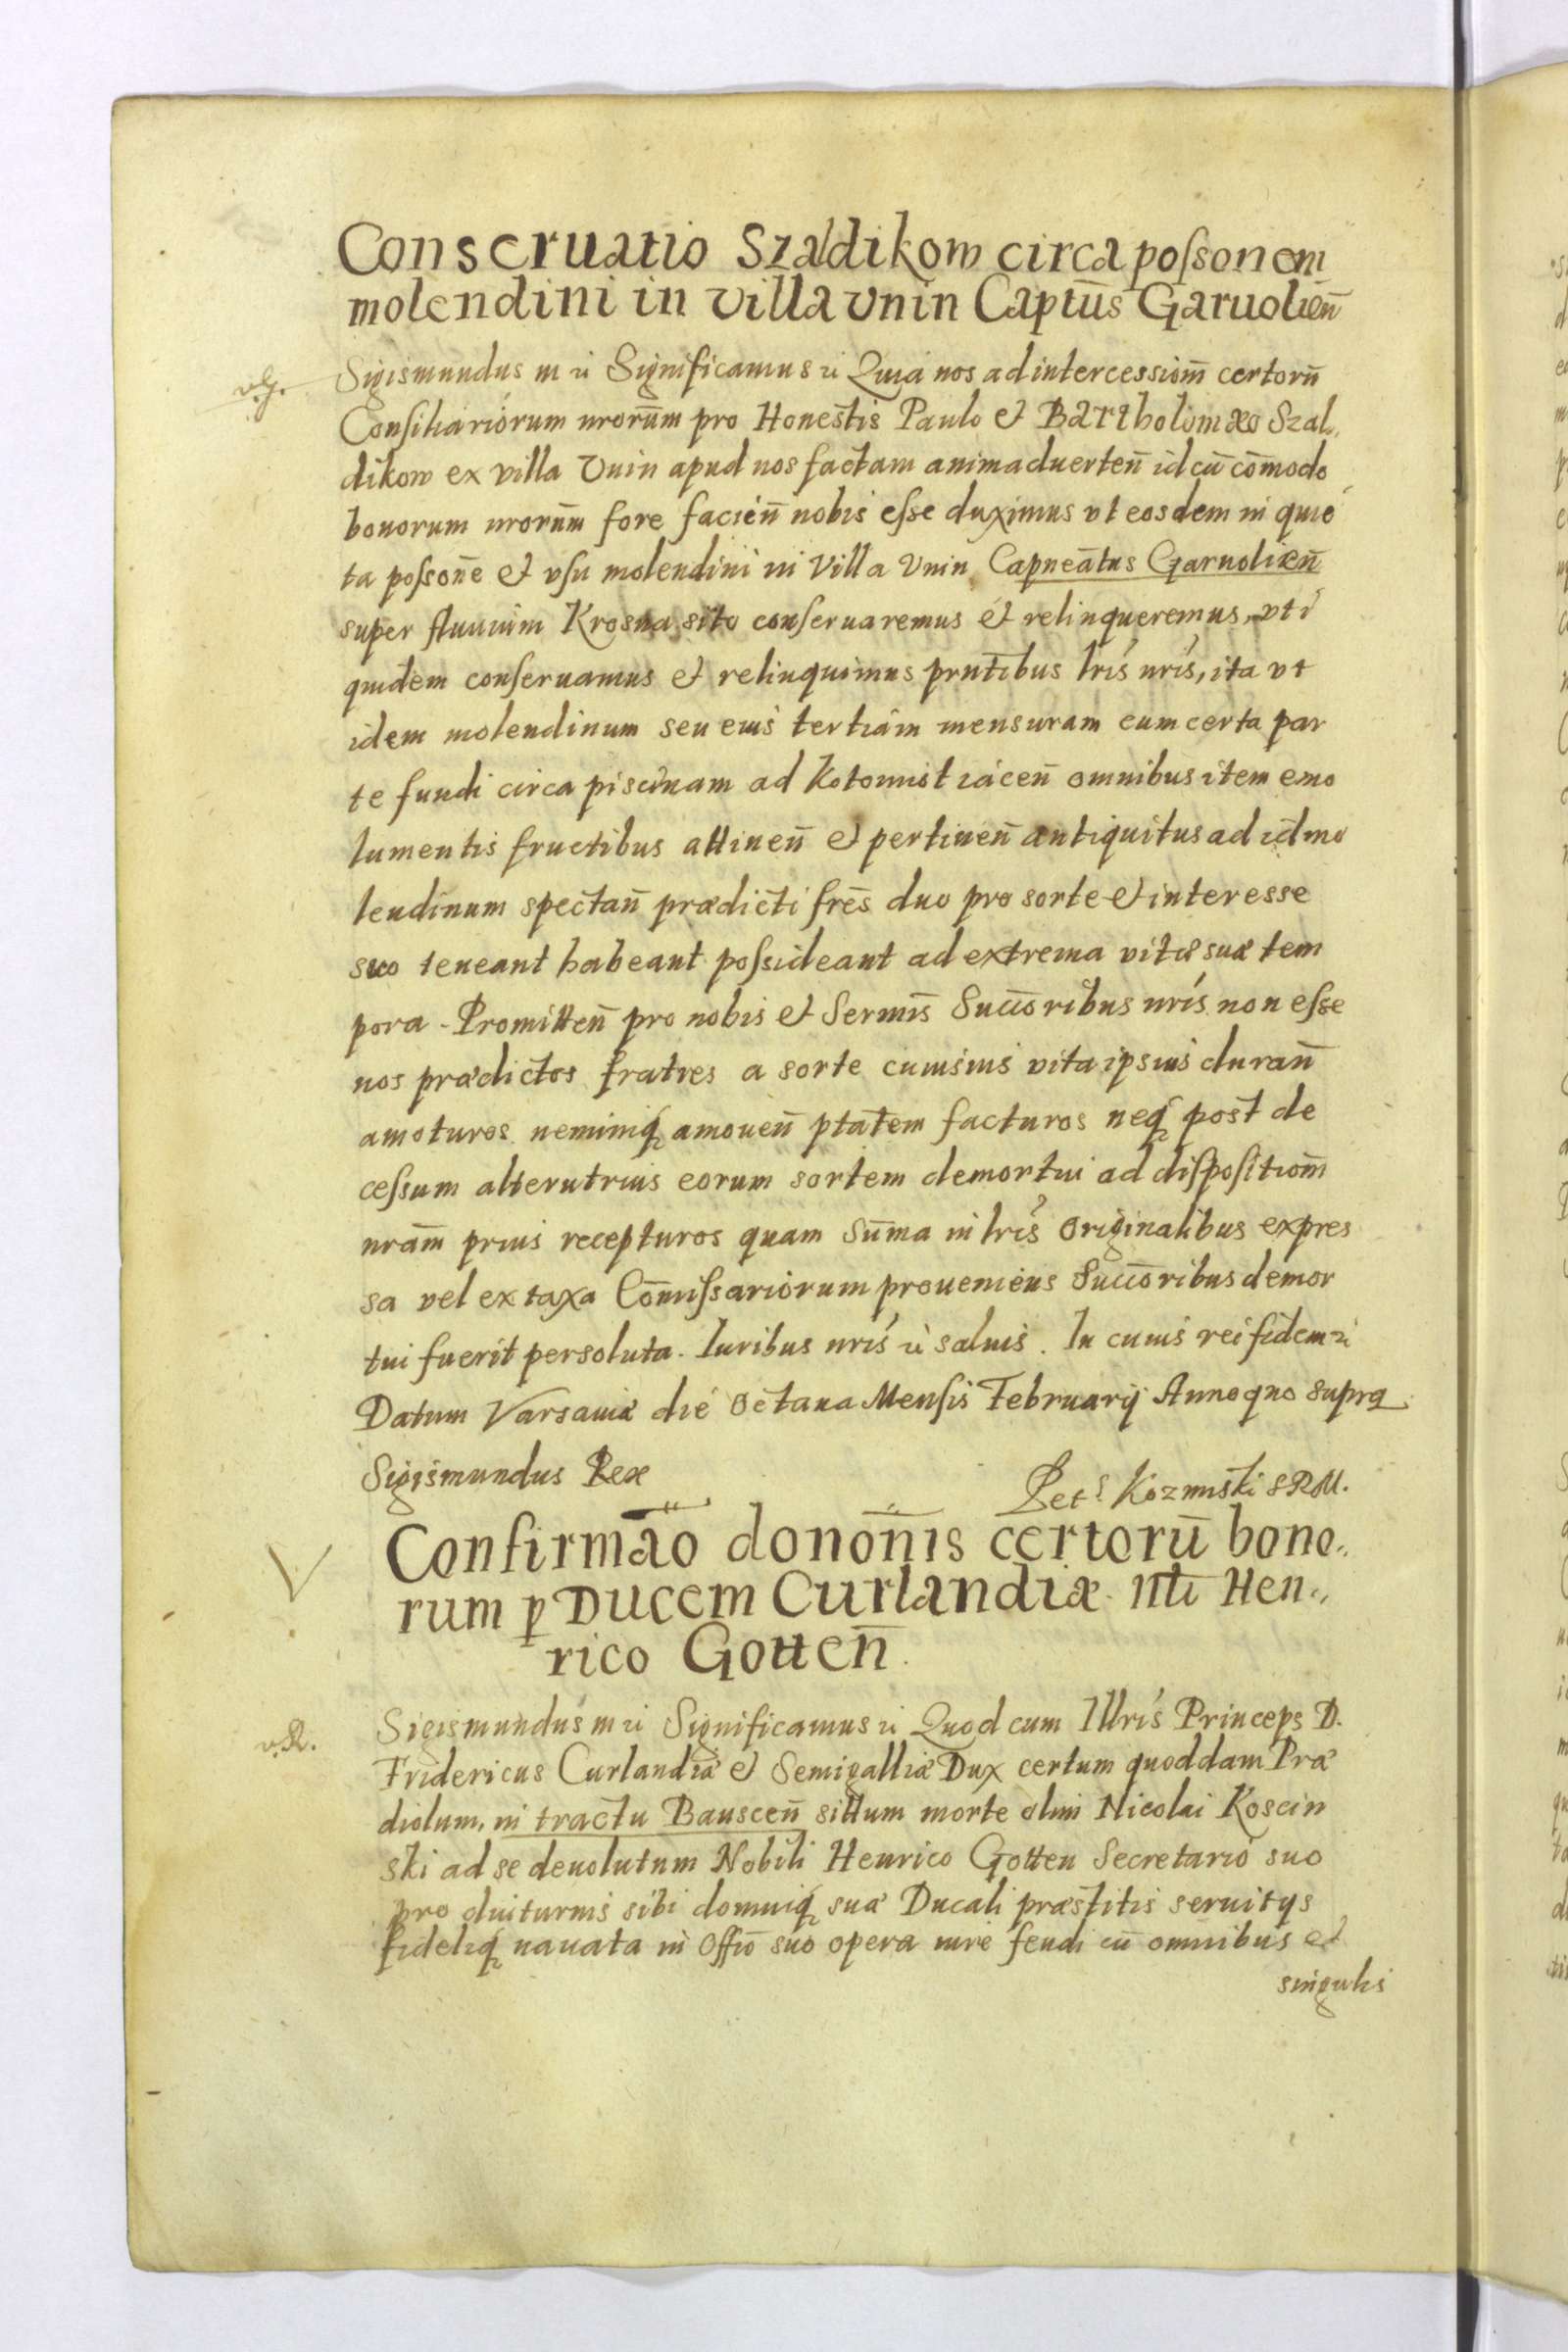 Conseruatio Szaldikow circa possonem
molendini in villa Vnin Captus̄ Garuolien̄
v.G.
Sigismundus III &c Significamus &c Quia nos ad intercessiom̄ certorū
Consiliariorum nrorūm pro Honestis Paulo et Bartholomæo Szal„
dikow ex villa Vnin apud nos factam animaduerten̄ id cū com̄odo
bonorum nrorūm fore facien̄ nobis esse duximus vt eosdem in quie
ta posson̄e et vsu molendini in Villa Vnin Capneat̄us Garuolien̄
super fluuium Krosna sito conseruaremus et relinqueremus, vti
quidem conseruamus et relinquimus prnt̄ibus lris nris, ita vt
idem molendinum seu eius tertiam mensuram cum certa par
te fundi circa piscinam ad Kotounist iacen̄ omnibus item emo
lumentis fructibus attinen̄ et pertinen̄ antiquitus ad id mo
lendinum spectan̄ prædicti frēs duo pro sorte et interesse
suo teneant habeant possideant ad extrema vitæ suæ tem
pora. Promitten̄ pro nobis et Sermis̄ Succ̄oribus nris non esse
nos prædictos fratres a sorte cuiusuis vita ipsius duran̄
amoturos neminiq₃ amouen̄ ptat̄em facturos neq₃ post de
cessum alterutrius eorum sortem demortui ad dispositiom̄
nram̄ prius recepturos quam Sum̄a in lris Originalibus expres
sa vel ex taxa Com̄issariorum proueniens Succ̄oribus demor
tui fuerit persoluta. Iuribus nris &c saluis. In cuius rei fidem &c
Datum Varsauiæ die Octaua Mensis Februarij Anno quo supra
Sigismundus Rex
Pet. Kozminski SRM.
Confirmāo donon̄is certorū bono„
rum p Ducem Curlandiæ Nli Hen„
rico Gotten̄.
v.R.
Sigismundus III &c Significamus &c Quod cum Illris Princeps D.
Fridericus Curlandiæ et Semigalliæ Dux certum quoddam Præ
diolum, in tractu Bauscen̄ sittum morte olim Nicolai Koscin
ski ad se deuolutum Nobili Henrico Gotten Secretario suo
pro diuturnis sibi domuiq₃ suæ Ducali præstitis seruitys
fideliq₃ nauata in Offio̅ suo opera iure feudi cū omnibus et
singulis